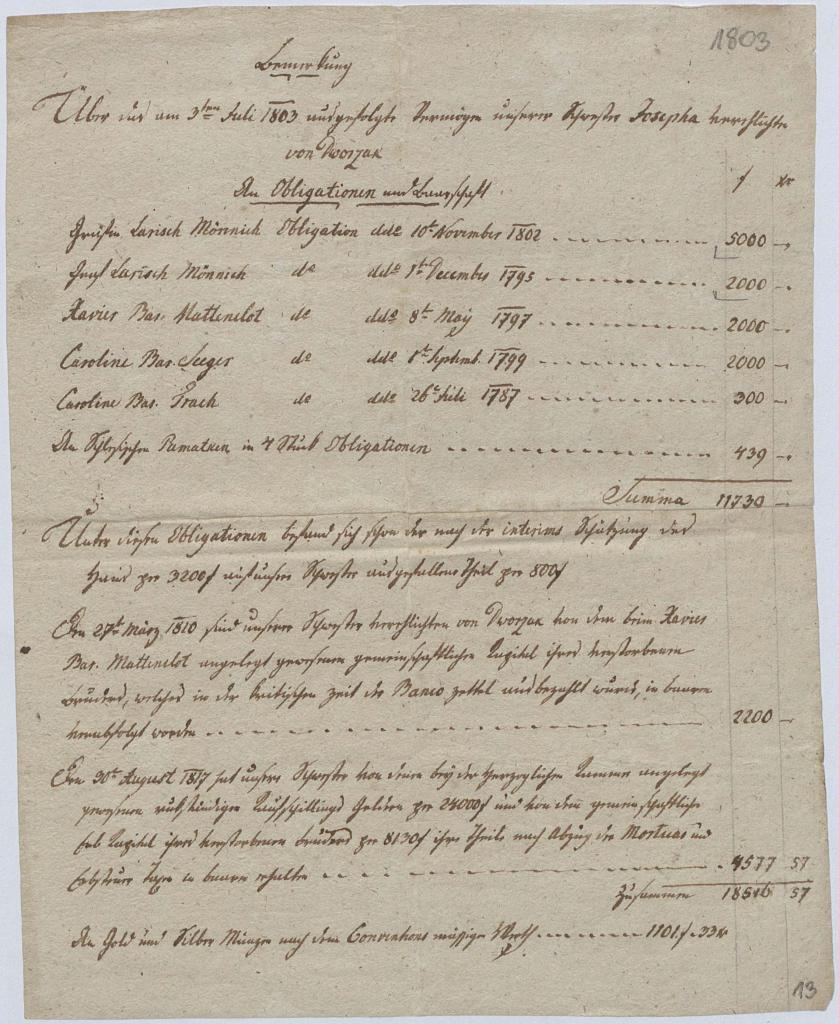 1803
Bemerkung
Über das am 3ten Juli 1803 ausgefolgte Vermögen unserer Schwester Josepha verehlichte
von Dworzak
An Obligationen und Baarschaft
f xr
Gräfin Larisch Mönnich Obligation ddo 10t November 1802 5000 -
Graf Larisch Mönnich do ddo 1t December 1795 2000 -
Xavier Bar. Mattenclot do ddo 8t May 1797 2000 -
Caroline Bar. Seeger do ddo 1t Septemb. 1799 2000 -
Caroline Bar. Trach do ddo 26t Juli 1787 300 -
An Schlesischen Pamatken in 4 Stück Obligationen 439 -
Summa 11730 -
Unter diesen Obligationen befand sich schon der nach der interims Schätzung des
Hauses pr 3200f auf unsere Schwester ausgefallene Theil pr 800f
Den 27t März 1810 sind unserer Schwester verehlichten von Dworzak von dem beim Xavier
Bar. Mattenclot angelegt gewesenen gemeinschaftlichen Kapital ihres verstorbenen
Bruders, welches in der kritischen Zeit der Banco zettel ausbezahlt wurde, in baaren
verabfolgt worden 2200 -
Den 30t August 1817 hat unsere Schwester von denen bey der herzoglichen Kammer angelegt
gewesenen rückständigen Kaufschillings Geldern pr 24000f und von dem gemeinschaftlichen
Kapital ihres verstorbenen Bruders pr 8130f ihre Theile nach Abzug des Mortuars und
Erbsteuer Taxen in baaren erhalten 4577 57
Zusammen 18516 57
An Gold und Silber Münzen nach dem Conventions mässigen Werth 1101 f 33 xr
13